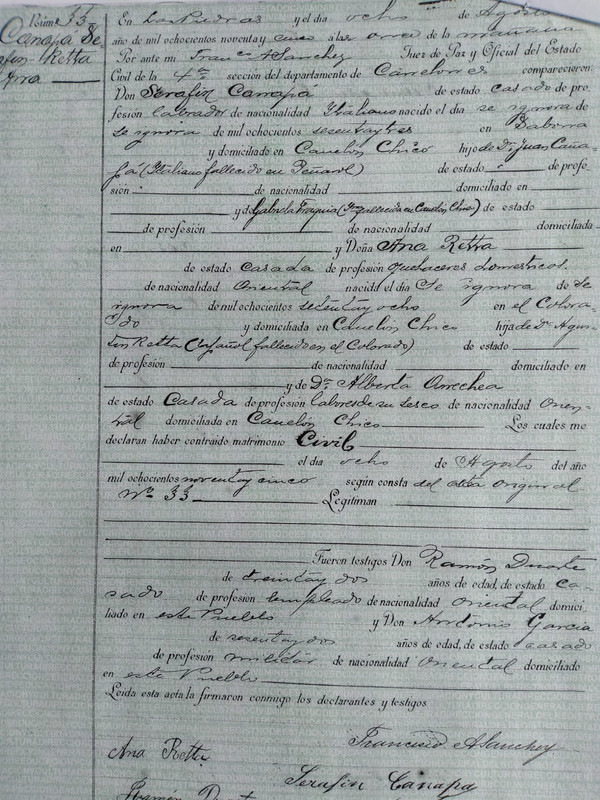 Núm: 33
Canapá Se-
rafin - Retta
Ana
En Las Piedras y el día ocho de Agosto
año de mil ochocientos noventa y cinco á las once de la mañana
Por ante mi Franco A Sanchez Juez de Paz y Oficial del Estado
Civil de la 4ta sección del departamento de Canelones comparecieron:
Don Serafin Canapá de estado casado de pro-
fesión labrador de nacionalidad Italiano nacido el día se ignora de
se ignora de mil ochocientos sesenta y tres en
y domiciliado en Canelón Chico hijo de Dn Juan Cana-
pá (Italiano fallecido en Peñarol) de estado de profe-
sión de nacionalidad domiciliado en
y de Gabriela (Itna fallecida en Canelón Chico) de estado
de profesión de nacionalidad domiciliada
en y Doña Ana Retta
de estado casada de profesión quehaceres domesticos
de nacionalidad Oriental nacida el día Se ignora de se
ignora de mil ochocientos setenta y ocho en el Colora-
do y domiciliada en Canelón Chico hija de Dn Agus-
tin Retta (Español fallecido en el Colorado) de estado
de profesión de nacionalidad domiciliado en
y de Da Alberta Arrechea
de estado Casada de profesión labores de su sexo de nacionalidad Orien-
tal domiciliada en Canelón Chico Los cuales me
declaran haber contraido matrimonio Civil
el día ocho de Agosto del año
mil ochocientos noventa y cinco según consta del acta original
No 33 Legitiman
Fueron testigos Don Ramón Duarte
de treinta y dos años de edad, de estado ca-
sado de profesión empleado de nacionalidad Oriental domici-
liado en este Pueblo y Don Antonio Garcia
de sesenta y dos años de edad, de estado casado
de profesión militar de nacionalidad Oriental domiciliado
en este Pueblo
Leida esta acta la firmaron conmigo los declarantes y testigos
Francisco A Sanchez
Ana Retta
Serafin Canapa
Ramón